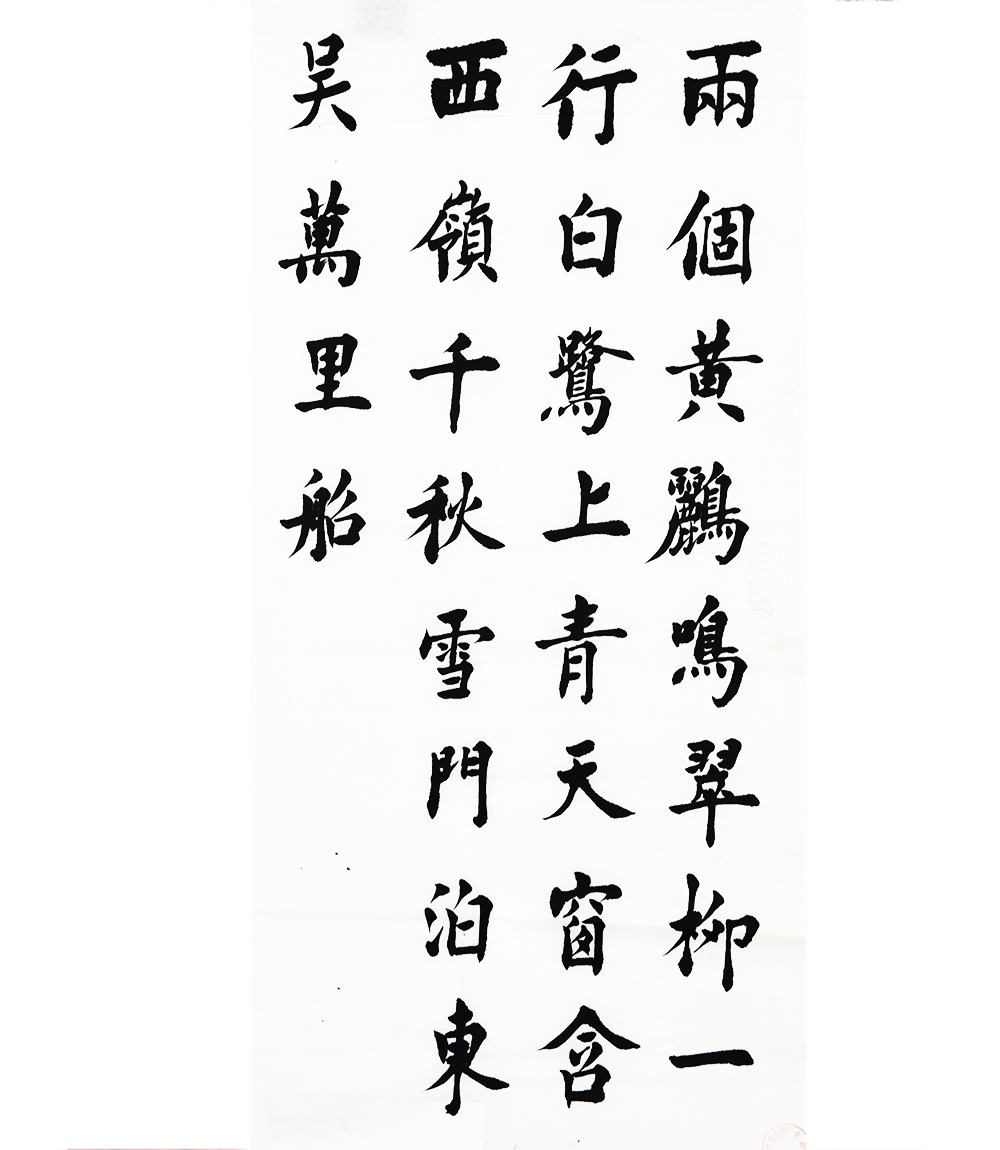 兩個黄鸝鳴翠柳一
行白鷺上青天窗含
西嶺千秋雪門泊東
吴萬里船